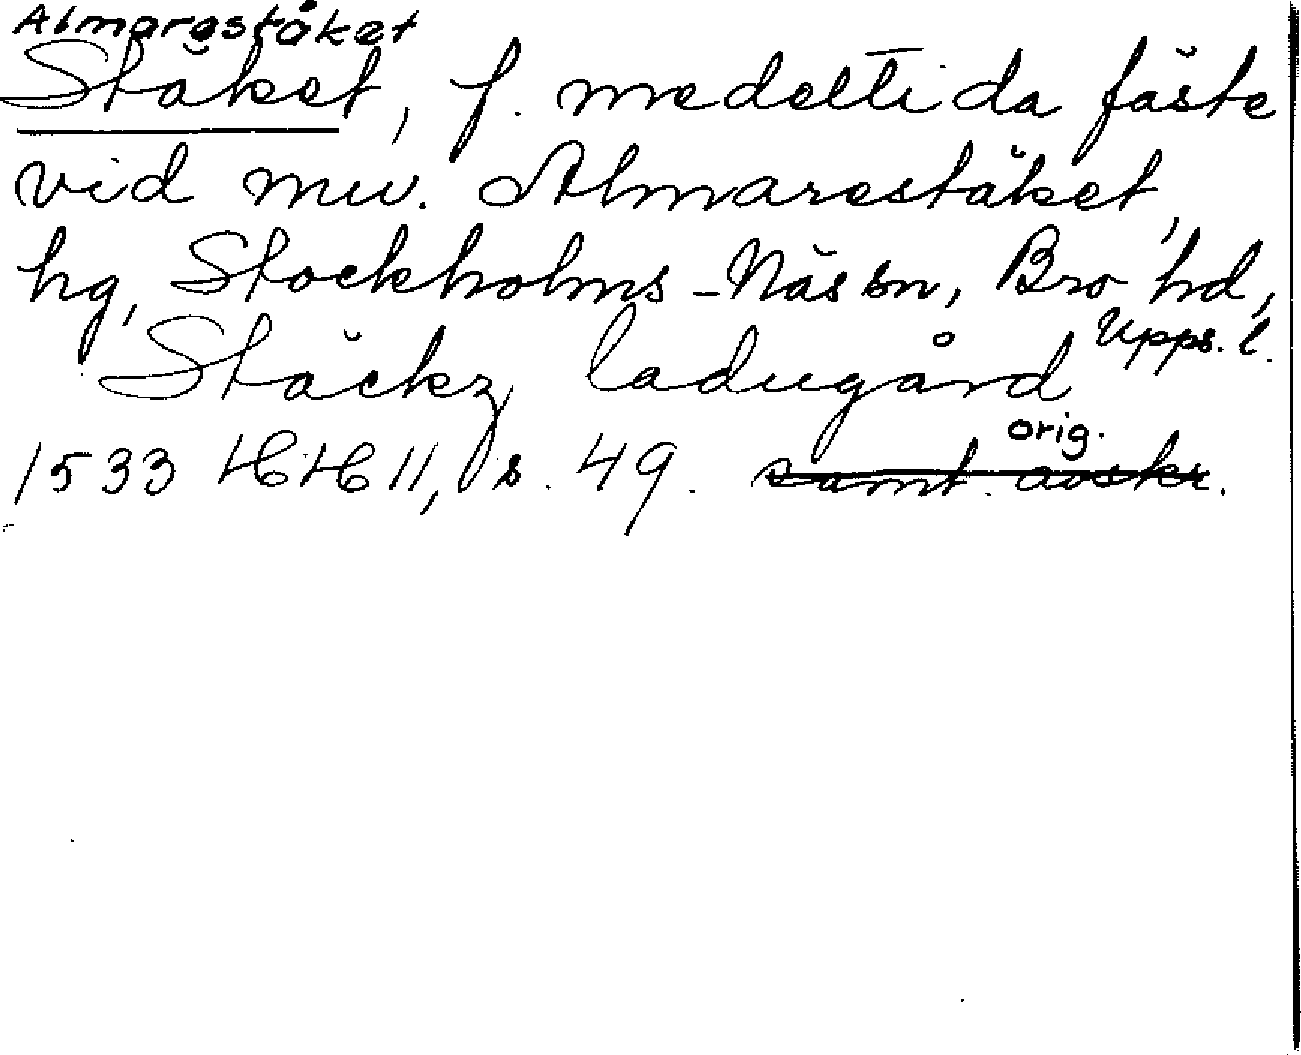 Almarestäket
Stäket, f. medeltida fäste
vid nuv. Almarestäket,
hg, Stockholms-Näs sn, Bro hd,
Upps. l.
Stäckz ladugård
orig.
1533 HH 11, s. 49. samt. avskr.